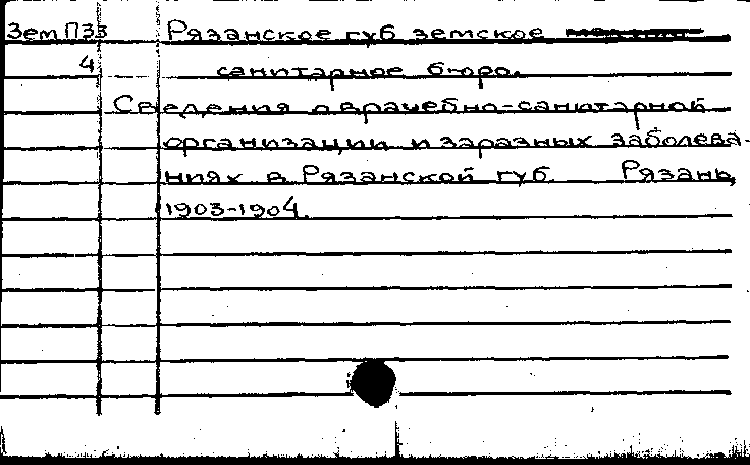 Зем П33 Рязанское губ земское
4 санитарное бюро.
Сведения о врачебно-санитарной
организации и заразных заболева-
ниях в Рязанской губ. Рязань,
1903-1904.